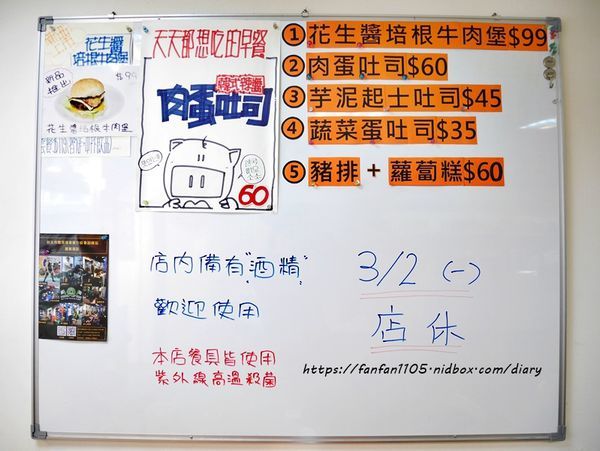 花生醬
培根牛肉堡
新品
推出
$99
花生醬培根牛肉堡
天天都想吃的早餐
韓式辣醬
肉蛋吐司
60
① 花生醬培根牛肉堡$99
② 肉蛋吐司$60
③ 芋泥起士吐司$45
④ 蔬菜蛋吐司$35
⑤ 豬排 + 蘿蔔糕$60
店內備有"酒精"
歡迎使用
本店餐具皆使用
紫外線高溫殺菌
3/2 (一)
店休
https://fanfan1105.nidbox.com/diary